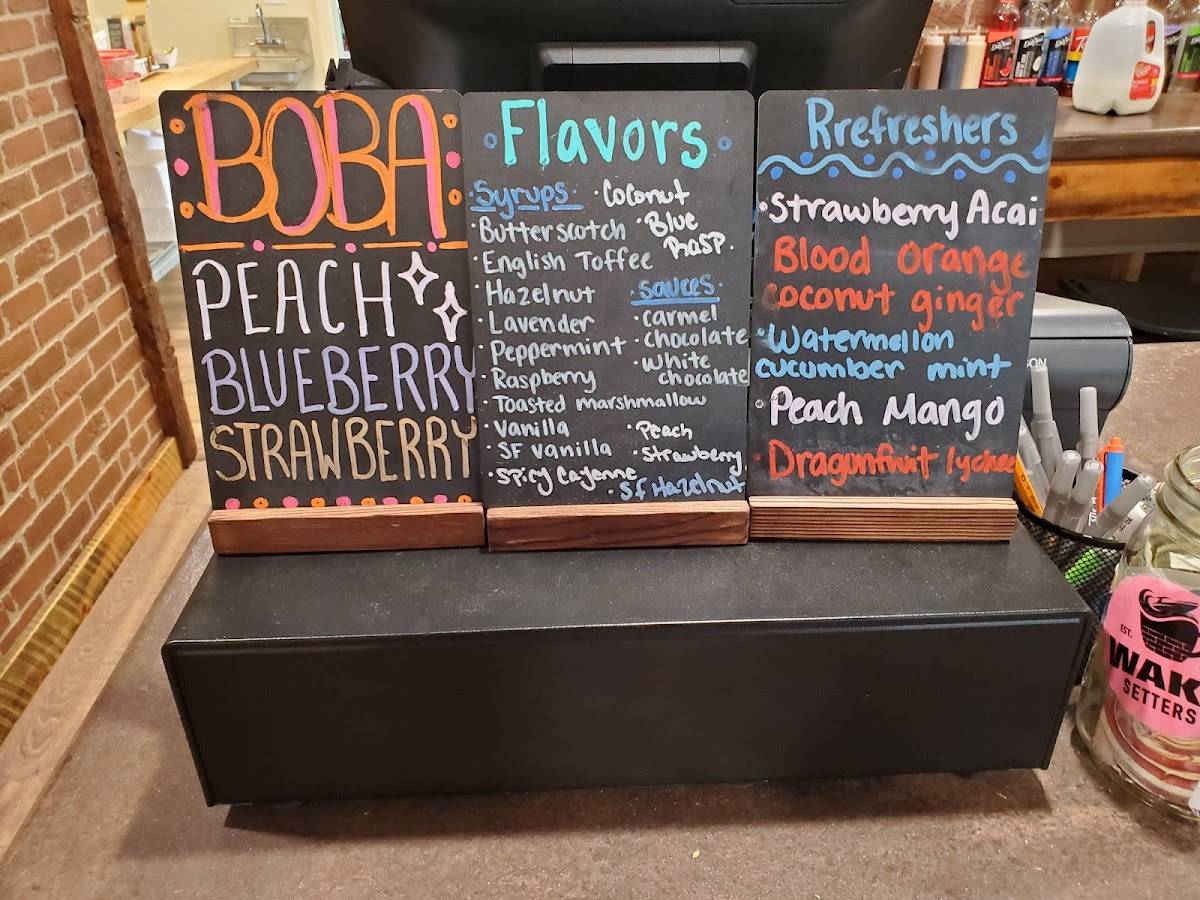 BOBA
PEACH
BLUEBERRY
STRAWBERRY
Flavors
Syrups
• Butterscotch
• English Toffee
• Hazelnut
• Lavender
• Peppermint
• Raspberry
• Toasted marshmallow
• Vanilla
• SF Vanilla
• Spicy Cayenne
• Coconut
• Blue
Rasp.
Sauces
• carmel
• chocolate
• white
chocolate
• Peach
• Strawberry
• SF Hazelnut
Rrefreshers
• Strawberry Acai
Blood orange
coconut ginger
• Watermellon
cucumber mint
• Peach Mango
• Dragonfruit lychee
EST.
WAK
SETTERS